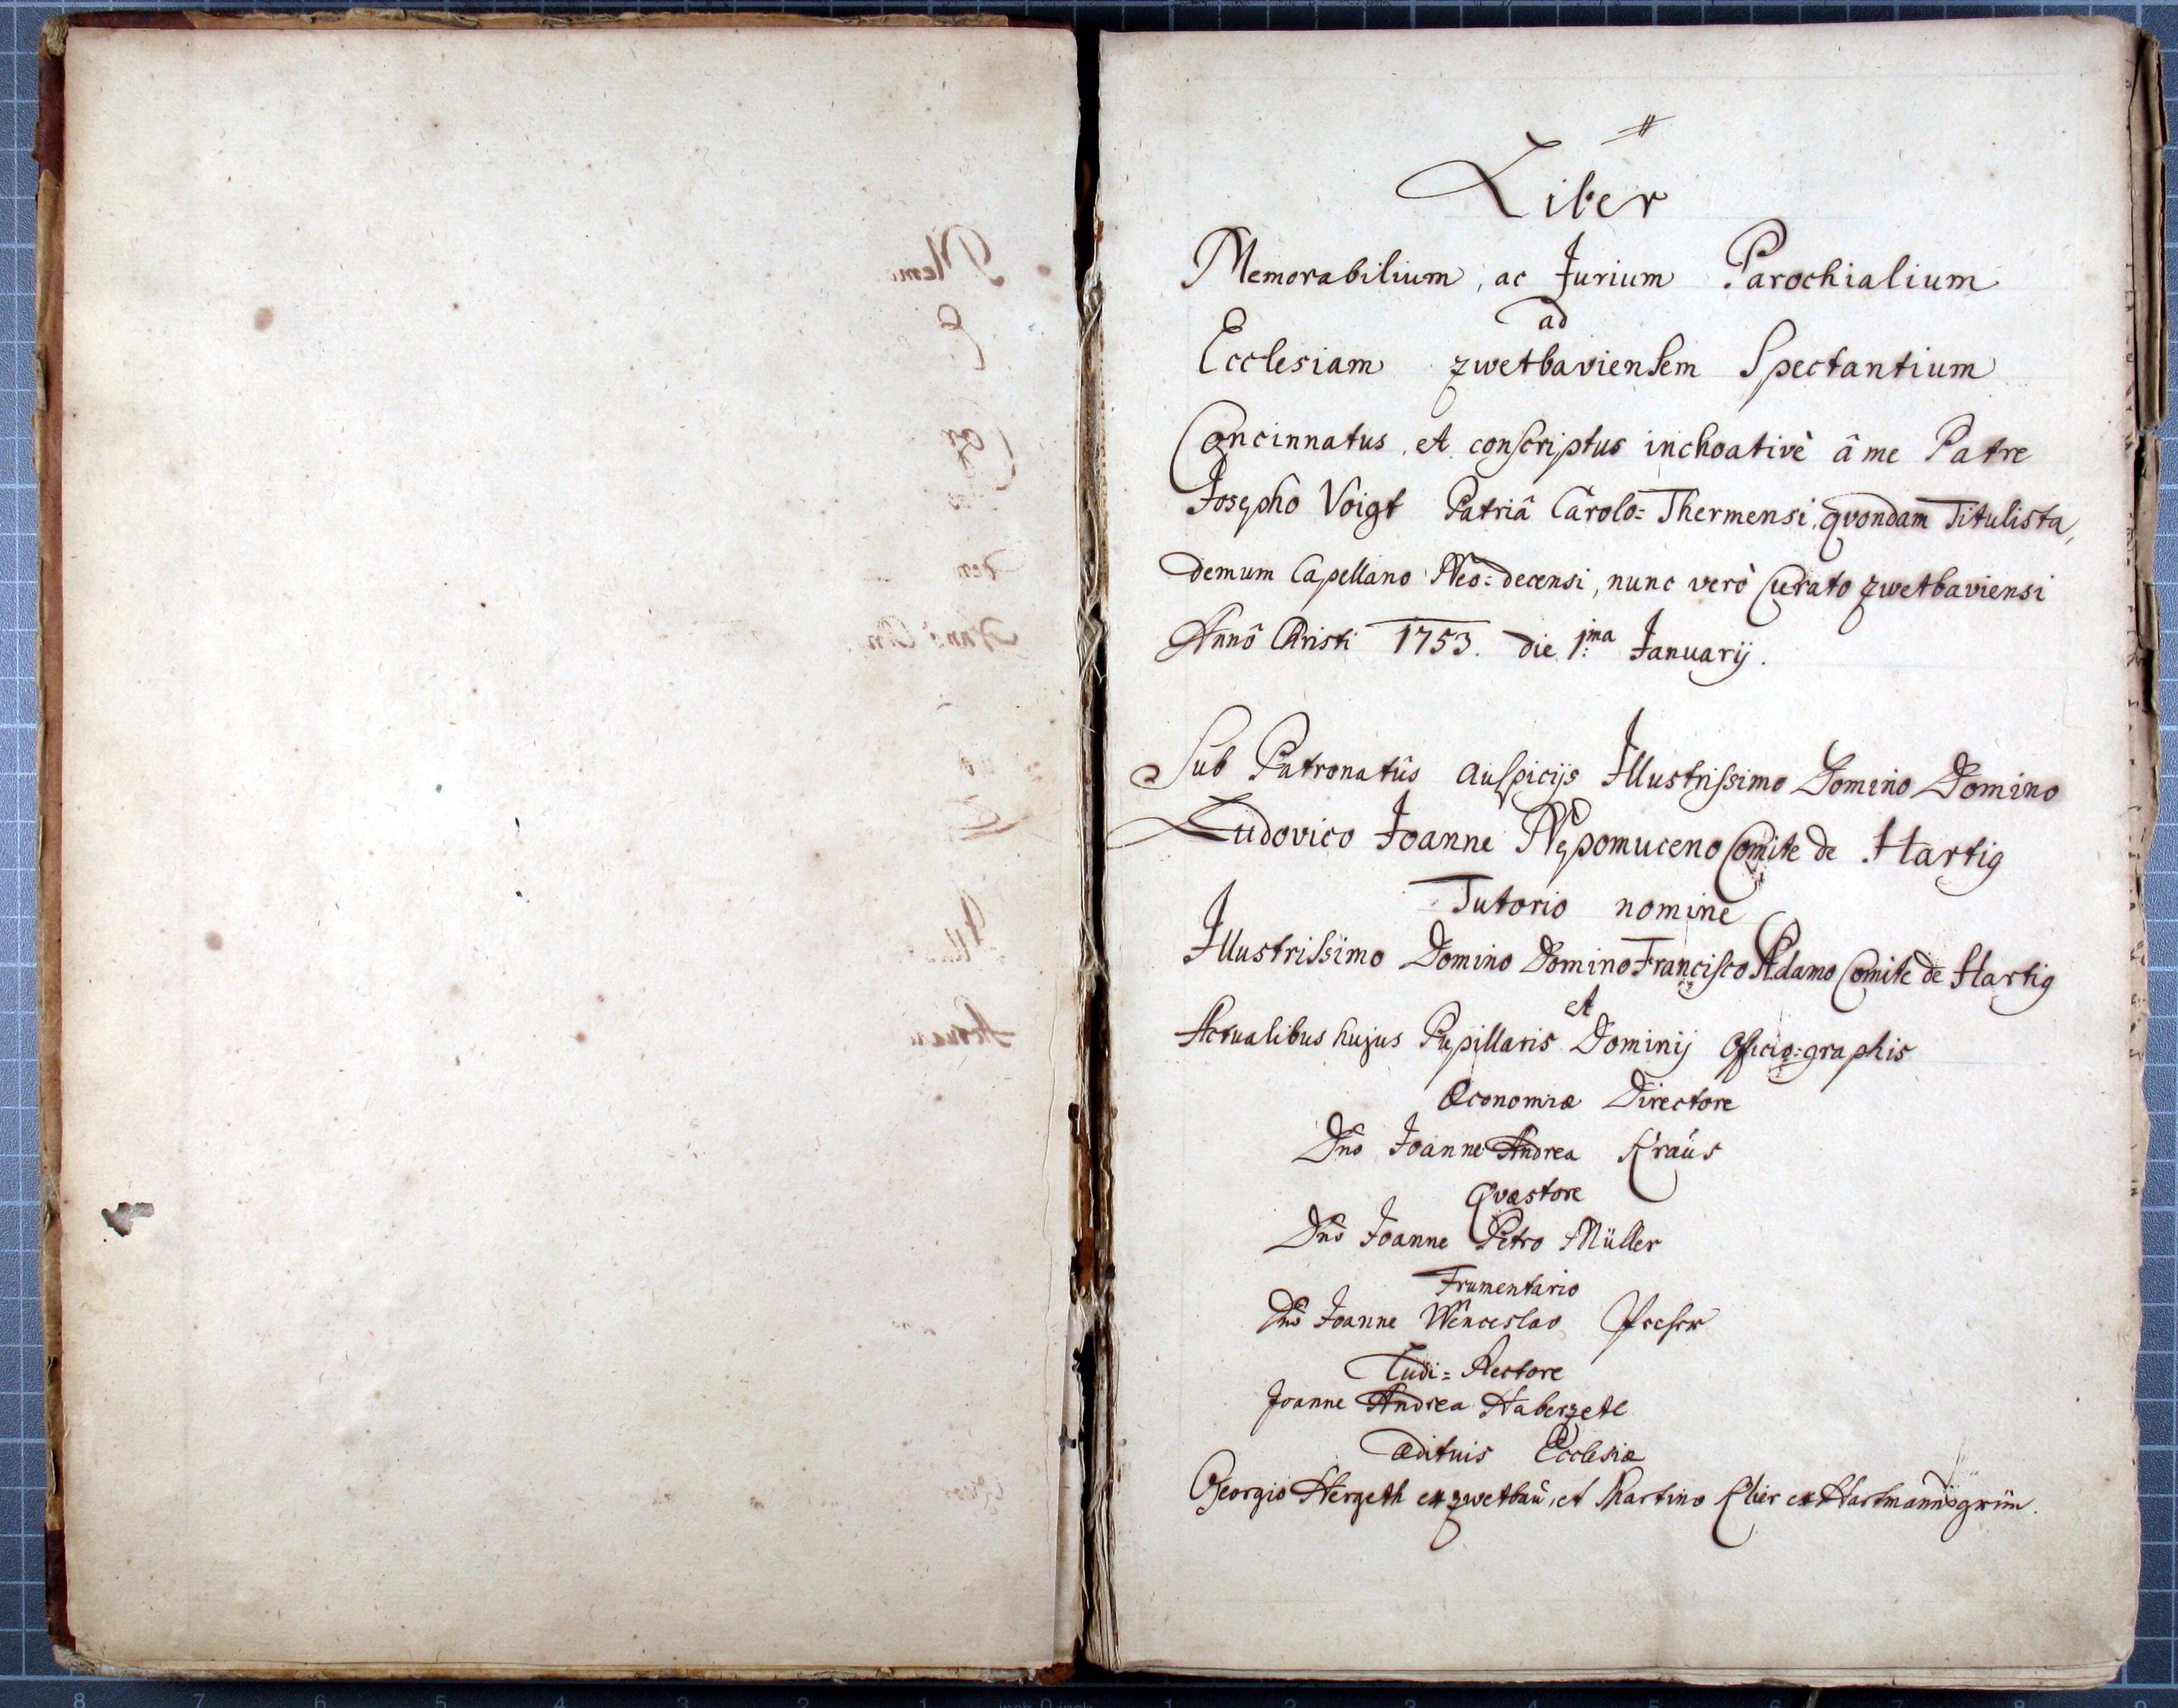 Liber
Memorabilium, ac Jurium Parochialium
ad
Ecclesiam zwetbaviensem Spectantium
Concinnatus, et conscriptus inchoativè â me Patre
Josepho Voigt Patriâ Carolo=Thermensi, qvondam Titulista,
demum Capellano Neo=decensi, nunc verò Curato zwetbaviensi
Annô Christi 1753. die 1.ma Januarij.
Sub Patronatûs auspicijs Illustrissimo Domino Domino
Ludovico Joanne Nepomuceno Comite de Hartig
Tutorio nomine
Illustrissimo Domino Domino Francisco Adamo Comite de Hartig
et
Actualibus hujus Pupillaris Dominij Officio=graphis
Œconomiæ Directore
Dno Joanne Andrea Kraus
Qvæstore
Dno Joanne Petro Müller
Frumentario
Dno Joanne Wenceslao
Ludi=Rectore
Joanne Andrea Haberzetl
Ædituis Ecclesiæ
Georgio Hergeth ex zwetbau, et Martino Klier ex Hartmannsgrün.